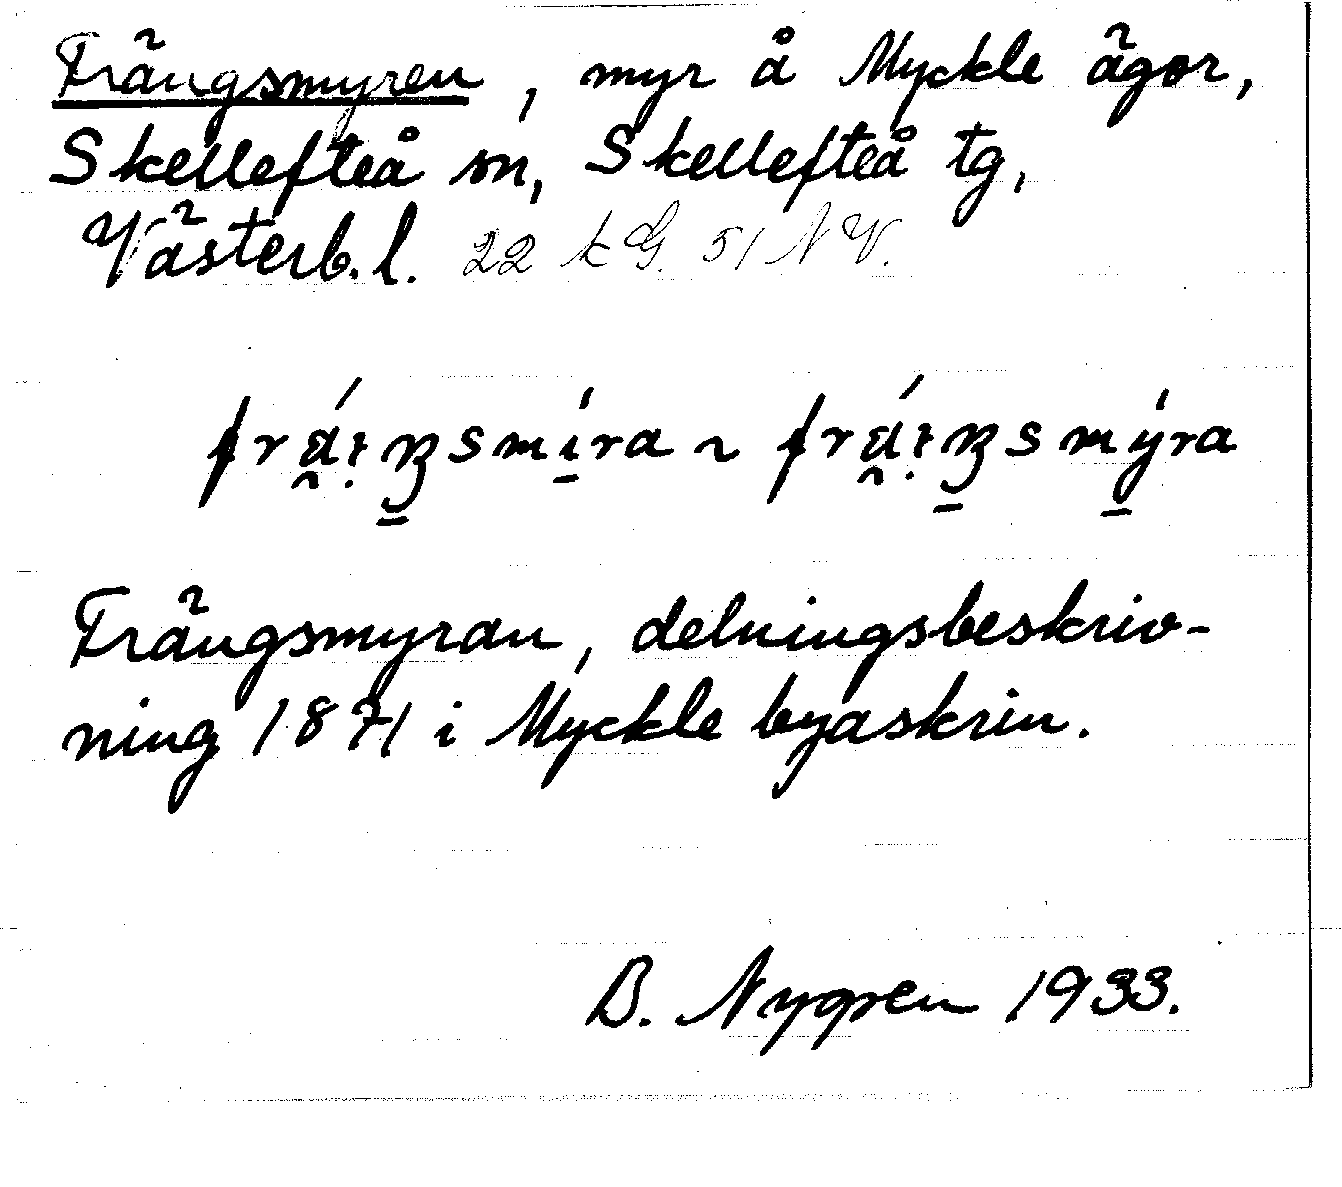 Frängsmyren, myr å Myckle ägor,
Skellefteå sn, Skellefteå tg,
Västerb. l. 22 k G. 51 N V.
Frängsmyran, delningsbeskriv-
ning 1871 i Myckle byaskrin.
B. Nygren 1933.